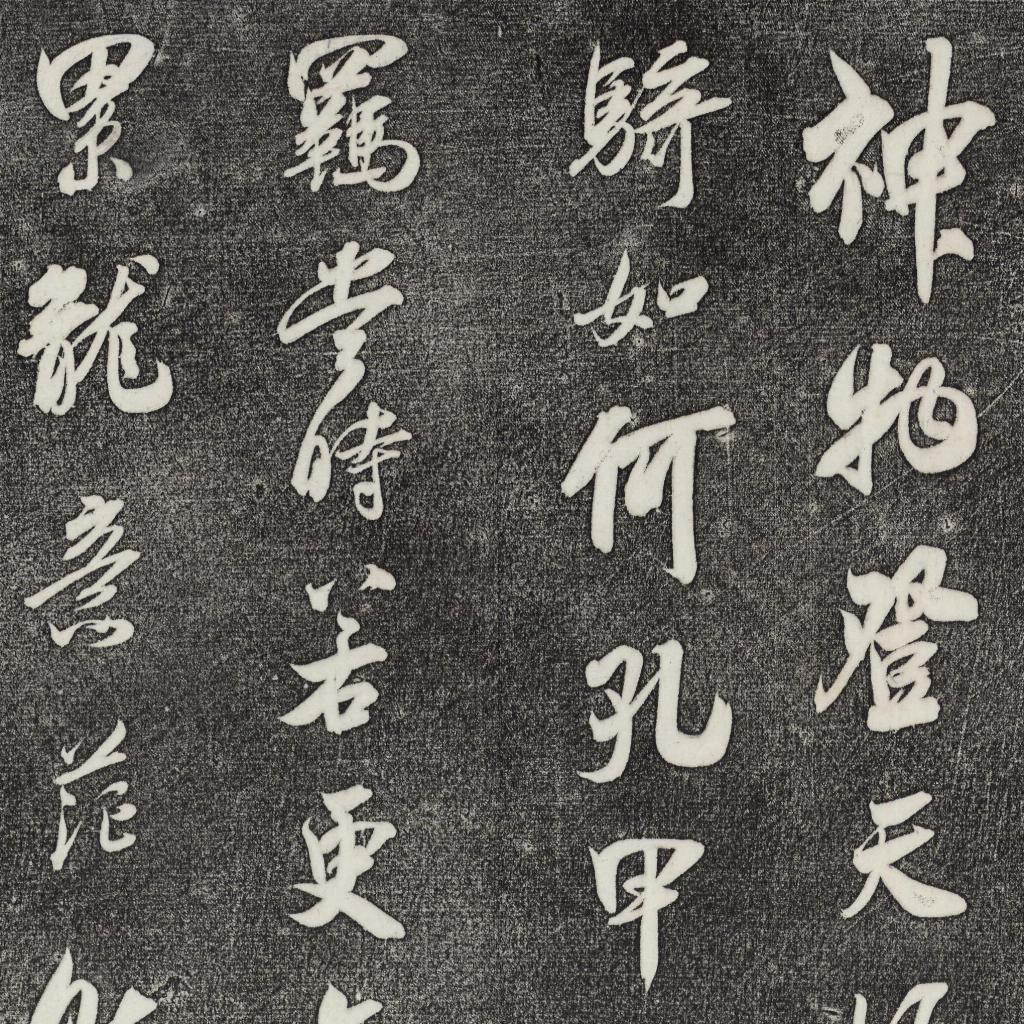 神物登天
騎如何孔甲
羈當時若更
累龍意茫